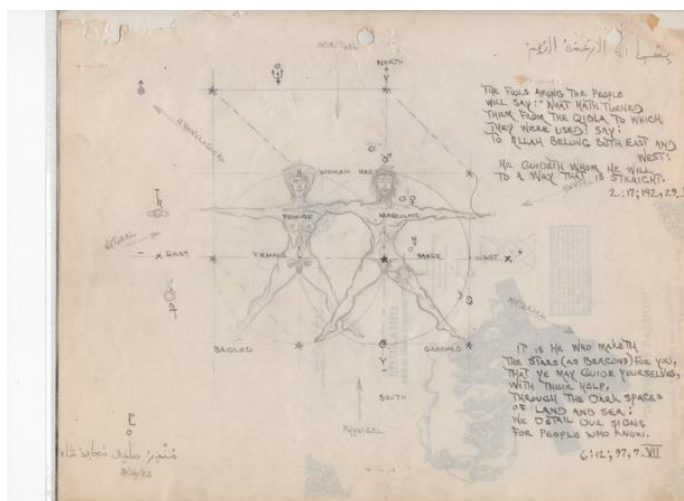 SPIRITUAL
NORTH
+
Y
THE FOOLS AMONG THE PEOPLE
WILL SAY: "WHAT HATH TURNED
THEM FROM THE QIBLA TO WHICH
THEY WERE USED? SAY:
TO ALLAH BELONG BOTH EAST AND
WEST:
HE GUIDETH WHOM HE WILL
TO A WAY THAT IS STRAIGHT.
2:17; 142, 29.
WOMAN MAN
FEMININE MASCULINE
NATURAL
- X EAST FEMALE MALE WEST +
BRIDLED GROOMED
Y
-
SOUTH
PHYSICAL
IT IS HE WHO MAKETH
THE STARS (AS BEACONS) FOR YOU,
THAT YE MAY GUIDE YOURSELVES,
WITH THEIR HELP,
THROUGH THE DARK SPACES
OF LAND AND SEA:
WE DETAIL OUR SIGNS
FOR PEOPLE WHO KNOW.
6:12; 97, 7. VII